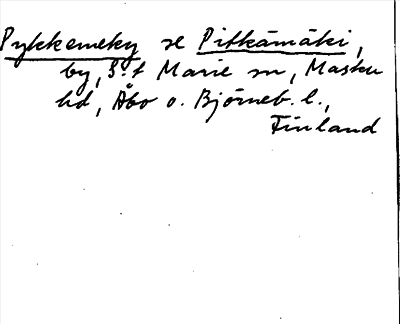 Pykkemeky se Pitkämäki,
by, S:t Marie sn, Masku
hd, Åbo o. Björneb. l.,
Finland